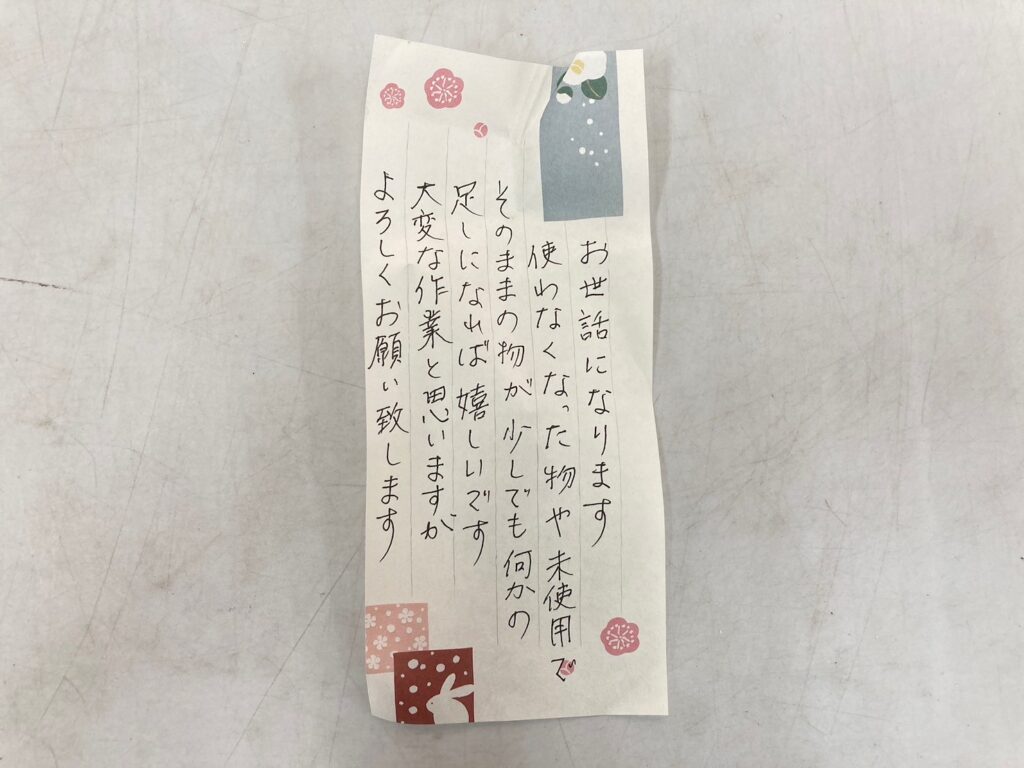 お世話になります
使わなくなった物や未使用で
そのままの物が少しでも何かの
足しになれば嬉しいです
大変な作業と思いますが
よろしくお願い致します